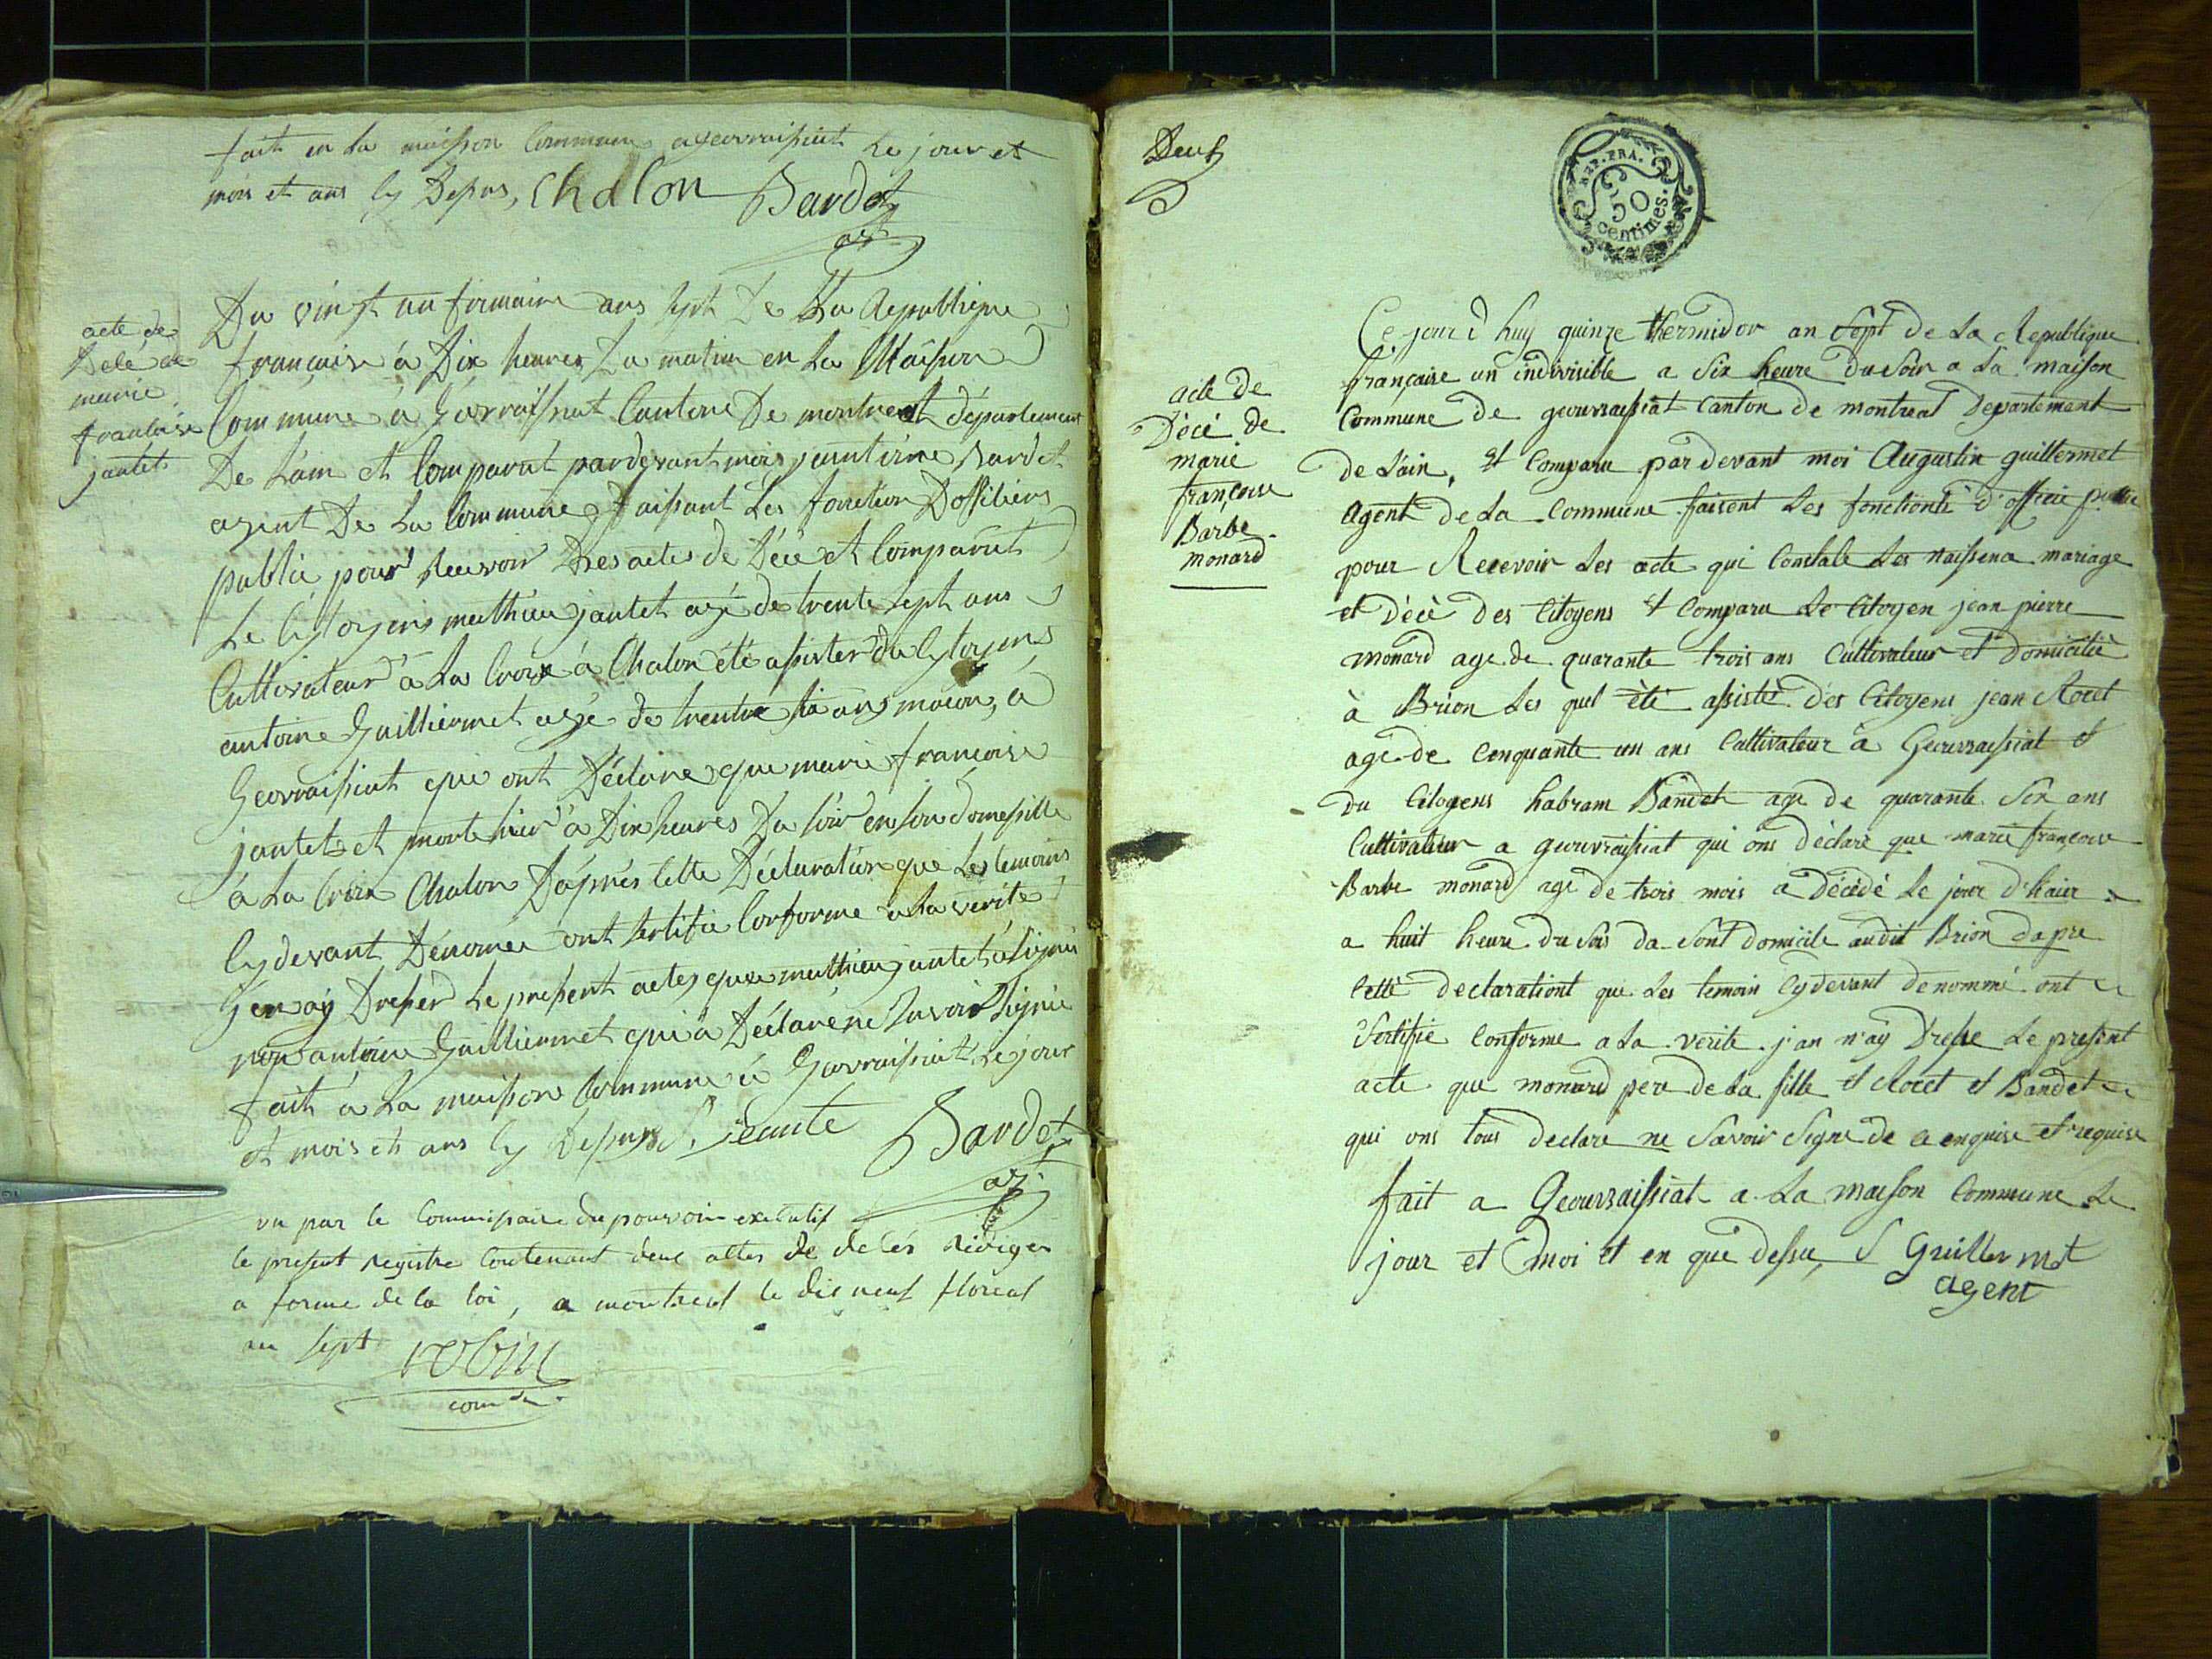 fait en la maisson Commune a geovraissiat Le jour et
mois et ans cy Depus, Chalon Bardet
agt
acte de
Dele de
marie
francoise
jantet
Du vingt un frimaire ans sept De La Republique
francaise à Dix heures Du matin en La Maison
Commune à Geovraissiat Canton De montreal département
De L'ain et Comparut pardevant moi Bardet
agent De La Commune faissant Les fonction D'offisiers
public pour Recevoir Des actes de Décé et Comparut
Le Cytoyens mathieu jantet agé de trente sept ans
Cultivateur à La Croix à Chalon été assister du Cytoyens
antoine Guilliermet agé de trentre six ans macon, à
Geovraissiat qui ont Déclare que marie francoise
jantet et morte hier à Dix heures Du soir en son domessille
à La Croix Chalon D'aprés Cette Déclaration que Les temoins
Cy devant Dénomés ont sertifié Conforme a La vérité
J'en ay Dressér Le present actes que mathieu jantet à signé
non antoine Guilliermet qui à Déclaré ne Savoir Signé
fait à La maison Commune à Geovraissiat Le jour
et mois et ans Cy Depus Bardet
agt
vu par le Commissaire du pouvoir exécutif
le present registre Contenant deux actes de décés rédiger
a forme de la loi, a montreal le dix neuf floreal
an sept robin
Deux
REP. FRA.
50
centimes.
acte de
Décé de
marie
françoise
Barbe
monard
Ce jour d huy quinze thermidor an Sept de La Republique
française un indivisible a Six heure du Soir a La maison
Commune de geourraissiat Canton de montreal Departement
de L'ain, Et Comparu par devant moi Augustin guillermet
Agent de La Commune faisent Les fonctionts d'officié public
pour Recevoir Les acte qui Constate Les naissena mariage
et Décè des Citoyens Et Comparu Le Citoyen jean pierre
monard age de quarante trois ans Cultivateur et Domicilié
à Brion Les quel été assisté des Citoyens jean Roret
age de Cenquante un ans Cultivateur a Geourraissiat et
du Citogens habram Bandet age de quarante Six ans
Cultivateur a geourraissiat qui ons déclaré que marie françoise
Barbe monard age de trois mois a Décédé Le jour d'haier
a huit heure du Soir da Sont domicile audit Brion dapre
Cette declarationt que Les temoin Cydevant denommé ont
Sertifie Conforme a La verite j'an n'ay Dresse Le present
acte que monard pere de La fille et Roret et Bandet
qui ons tous declare ne Savoir Signe de ce enquise et requise
fait a Geourraissiat a La maison Commune Le
jour et moi et en que dessue, Guillermet
agent